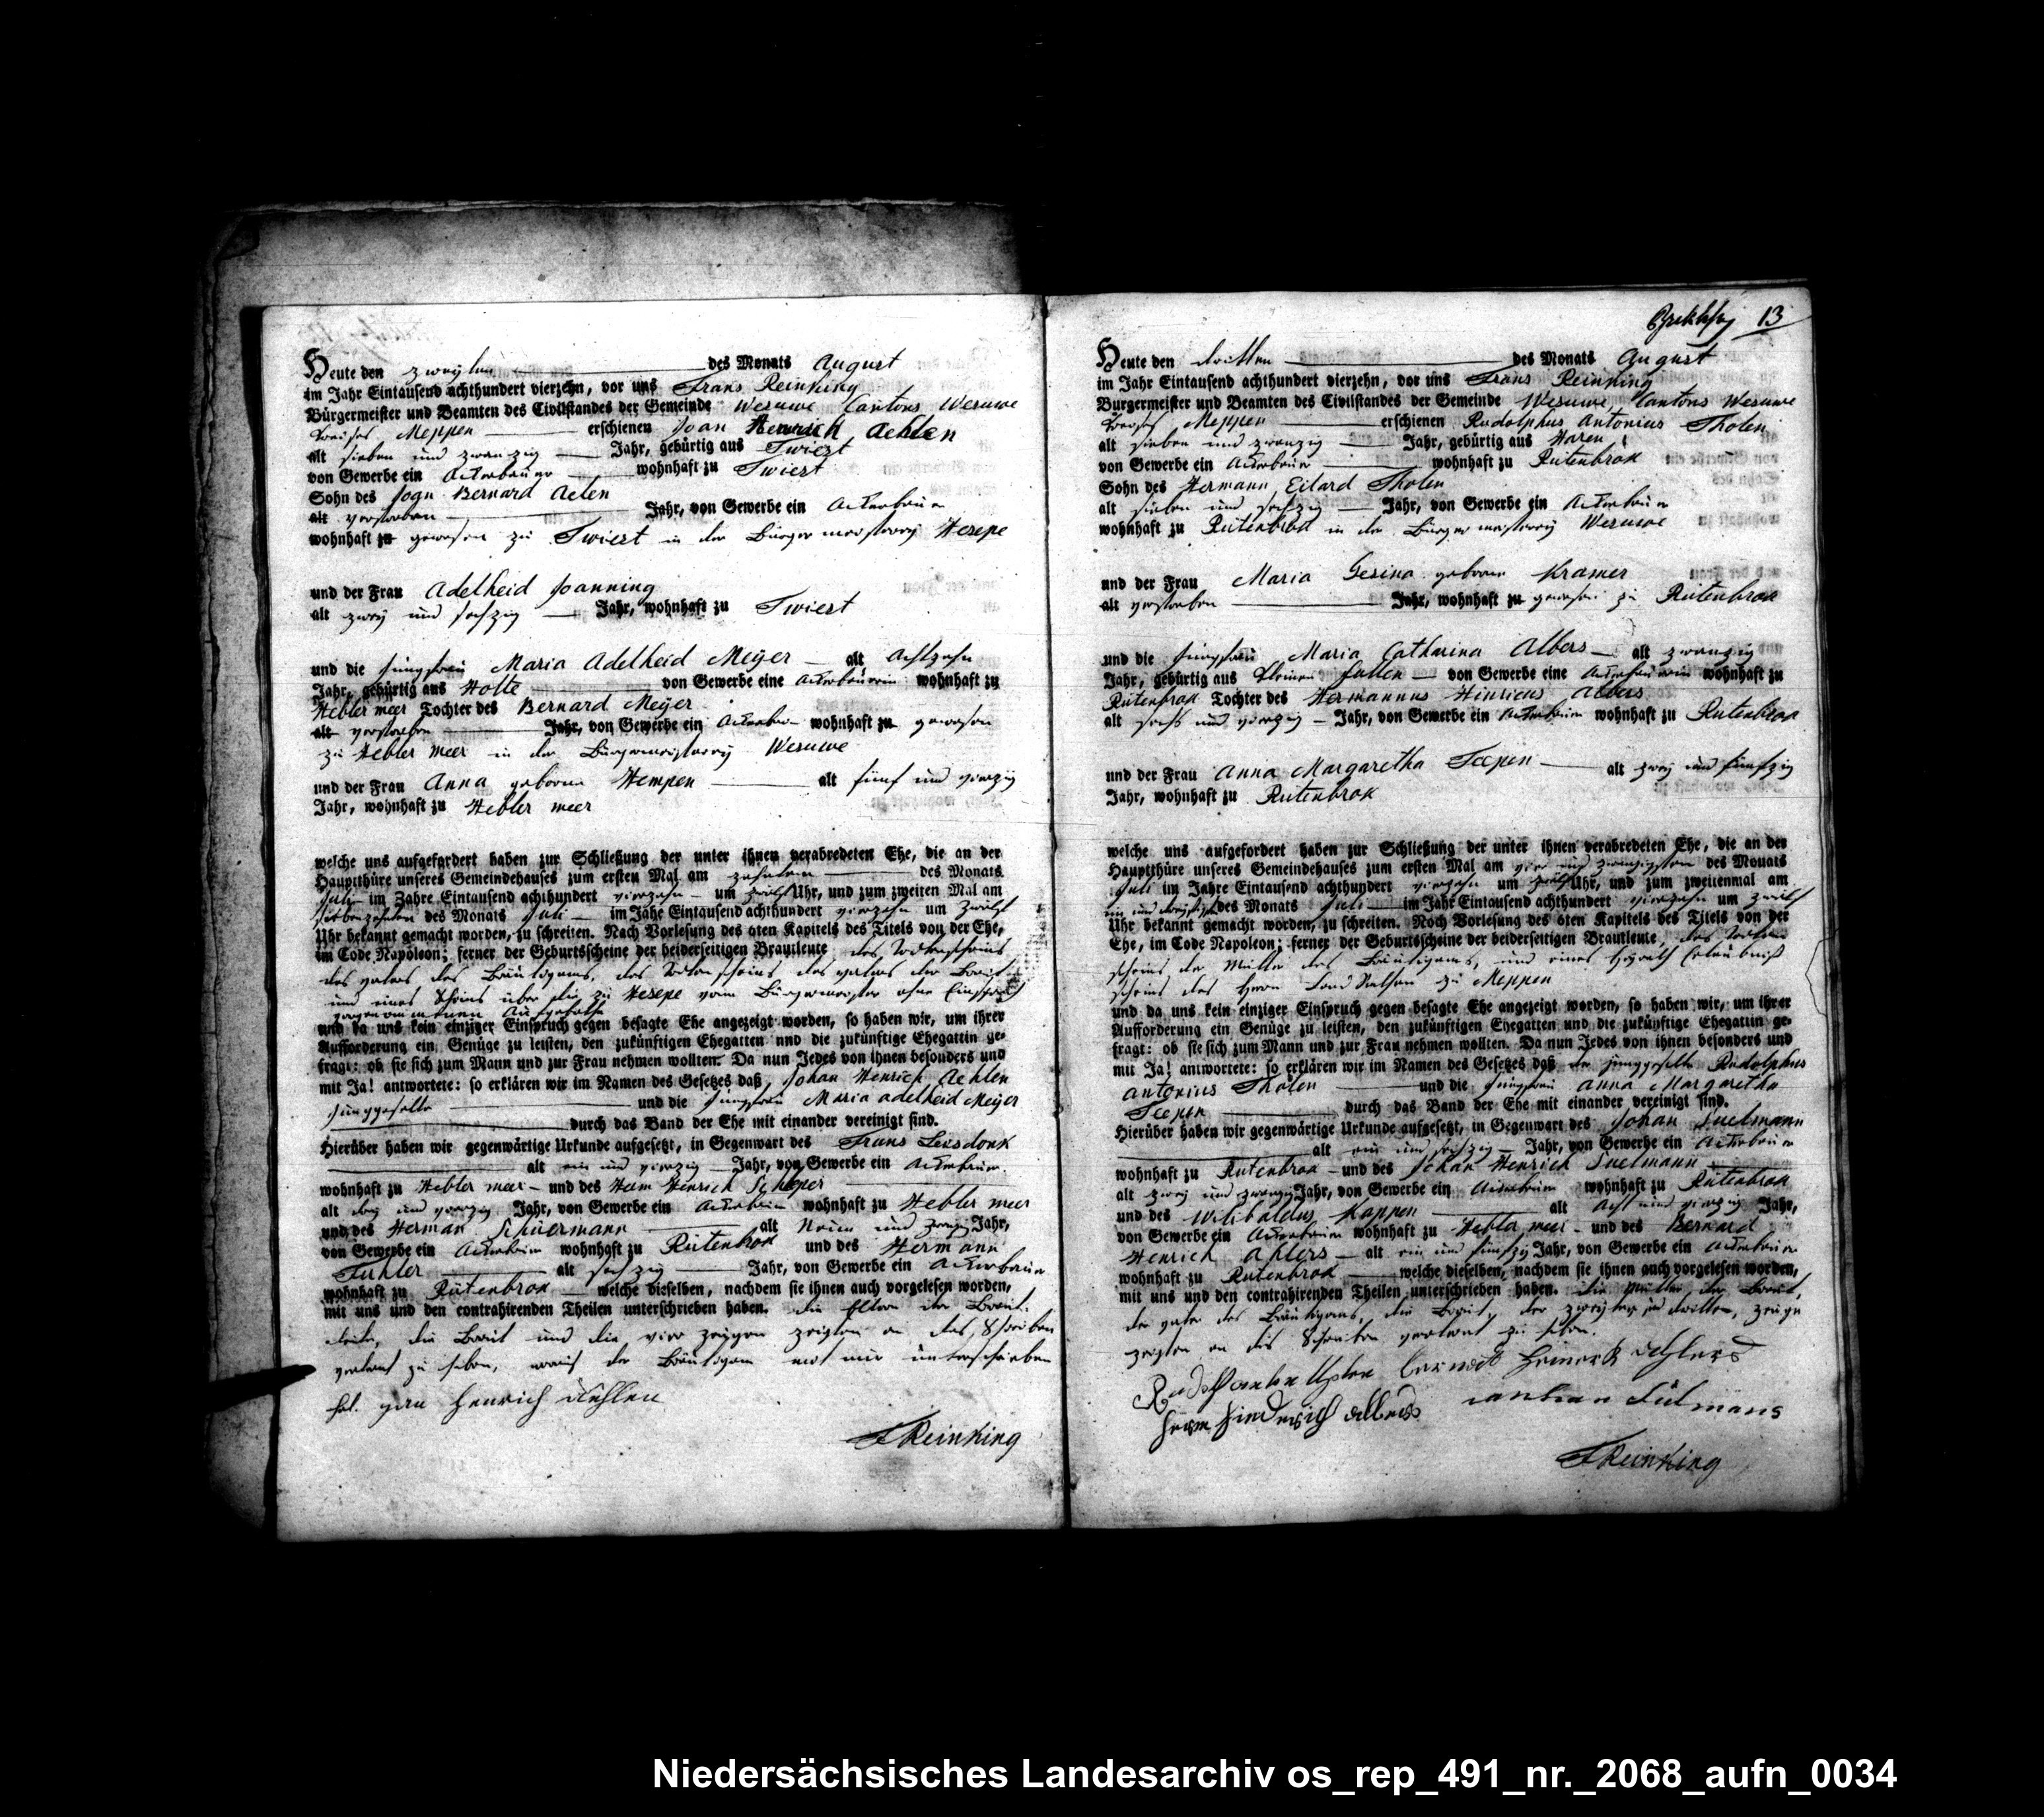 Heute den zweyten des Monats August
im Jahr Eintausend achthundert vierzehn, vor uns Frans Reinking
Bürgermeister und Beamten des Civilstandes der Gemeinde Wesuwe Cantons Wesuwe
Kreises Meppen erschienen Joan Henrich Aehlen
alt sieben und zwanzig Jahr, gebürtig aus Twiest
von Gewerbe ein Ackerbauer wohnhaft zu Twiest
Sohn des Bernard Aelen
alt verstorben Jahr, von Gewerbe ein Ackerbauer
wohnhaft zu gewesen zu Twiest in der Bürgermeisterey Hesepe
und der Frau Adelheid Joanning
alt zwey und sechzig Jahr, wohnhaft zu Twiest
und die Jungfrau Maria Adelheid Meyer alt Achtzehn
Jahr, gebürtig aus Holte von Gewerbe eine Ackerbäuerin wohnhaft zu
Hebler meer Tochter des Bernard Meyer
alt verstorben Jahr, von Gewerbe ein Ackerbauer wohnhaft zu gewesen
zu Hebler meer in der Bürgermeisterey Wesuwe
und der Frau Anna geborne Hempen alt fünf und vierzig
Jahr, wohnhaft zu Hebler meer
welche uns aufgefordert haben zur Schließung der unter ihnen verabredeten Ehe, die an der
Hauptthüre unseres Gemeindehauses zum ersten Mal am zehnten des Monats
Juli im Jahre Eintausend achthundert vierzehn um zwölf Uhr, und zum zweiten Mal am
siebenzehnten des Monats Juli im Jahe Eintausend achthundert vierzehn um zwölf
Uhr bekannt gemacht worden, zu schreiten. Nach Vorlesung des 6ten Kapitels des Titels von der Ehe,
im Code Napoleon; ferner der Geburtsscheine der beiderseitigen Brautleute, des Todtenscheins
des vaters des Bräutigams, des Todtenscheins des vaters der Braut
und eines Scheins über die zu Hesepe vom Bürgermeister ohne Einspruch
vorgenommenen Aufgebothe
und da uns kein einziger Einspruch gegen besagte Ehe angezeigt worden, so haben wir, um ihrer
Aufforderung ein Genüge zu leisten, den zukünftigen Ehegatten und die zukünftige Ehegattin ge-
fragt: ob sie sich zum Mann und zur Frau nehmen wollten. Da nun Jedes von ihnen besonders und
mit Ja! antwortete: so erklären wir im Namen des Gesetzes daß, Johan Henrich Aehlen
Junggeselle und die Jungfrau Maria adelheid Meyer
durch das Band der Ehe mit einander vereinigt sind.
Hierüber haben wir gegenwärtige Urkunde aufgesetzt, in Gegenwart des Frans Leesdonk
alt ein und vierzig Jahr, von Gewerbe ein Ackerbauer
wohnhaft zu Hebler meer und des Herm Henrich Scheper
alt drey und vierzig Jahr, von Gewerbe ein Ackerbauer wohnhaft zu Hebler meer
und des Herman Schüermann alt Neun und zwanzig Jahr,
von Gewerbe ein Ackerbauer wohnhaft zu Rütenbrok und des Hermann
alt sechzig Jahr, von Gewerbe ein Ackerbauer
wohnhaft zu Rütenbrok welche dieselben, nachdem sie ihnen auch vorgelesen worden,
mit uns und den contrahirenden Theilen unterschrieben haben. die Eltern der Braut-
leute, die Braut und die vier zeugen zeigten an das Schreiben
verlernt zu haben, der Bräutigam mit mir unterschrieben
hat. Henrich Aehlen
FReinking
13
Heute den dritten des Monats August
im Jahr Eintausend achthundert vierzehn, vor uns Frans Reinking
Bürgermeister und Beamten des Civilstandes der Gemeinde Wesuwe, Cantons Wesuwe
Kreises Meppen erschienen Rudolphus Antonius Tholen
alt sieben und zwanzig Jahr, gebürtig aus Haren
von Gewerbe ein Ackerbauer wohnhaft zu Rütenbrok
Sohn des Hermann Eilard Tholen
alt sieben und sechzig Jahr, von Gewerbe ein Ackerbauer
wohnhaft zu Rütenbrok in der Bürgermeisterey Wesuwe
und der Frau Maria Gesina geborne Kramer
alt verstorben Jahr, wohnhaft zu gewesen zu Rütenbrok
und die Jungfrau Maria Catharina Albers alt zwanzig
Jahr, gebürtig aus kleinen fullen von Gewerbe eine Ackerbäuerin wohnhaft zu
Rütenbrok Tochter des Hermannus Hinricus Albers
alt sechs und vierzig Jahr, von Gewerbe ein Ackerbauer wohnhaft zu Rütenbrok
und der Frau Anna Margaretha Teepen alt zwey und fünfzig
Jahr, wohnhaft zu Rütenbrok
welche uns aufgefordert haben zur Schließung der unter ihnen verabredeten Ehe, die an der
Hauptthüre unseres Gemeindehauses zum ersten Mal am vier und zwanzigsten des Monats
Juli im Jahre Eintausend achthundert vierzehn um zwölf Uhr, und zum zweitenmal am
ein und dreyßigsten des Monats Juli im Jahr Eintausend achthundert vierzehn um zwölf
Uhr bekannt gemacht worden, zu schreiten. Noch Vorlesung des 6ten Kapitels des Titels von der
Ehe, im Code Napoleon; ferner der Geburtsscheine der beiderseitigen Brautleute, des Todten-
scheins der Mutter des Bräutigams, und eines Heyrath Erlaubniß
scheins des Herrn Land Rathen zu Meppen
und da uns kein einziger Einspruch gegen besagte Ehe angezeigt worden, so haben wir, um ihrer
Aufforderung ein Genüge zu leisten, den zukünftigen Ehegatten und die zukünftige Ehegattin ge-
fragt: ob sie sich zum Mann und zur Frau nehmen wollten. Da nun Jedes von ihnen besonders und
mit Ja! antwortete: so erklären wir im Namen des Gesetzes daß der Junggeselle Rudolphus
Antonius Tholen und die Jungfrau Anna Margaretha
Teepen durch das Band der Ehe mit einander vereinigt sind.
Hierüber haben wir gegenwärtige Urkunde aufgesetzt, in Gegenwart des Johan Suelmann
alt ein und sechzig Jahr, von Gewerbe ein Ackerbauer
wohnhaft zu Rütenbrok und des Johan Henrich Suelmann
alt zwey und zwanzig Jahr, von Gewerbe ein Ackerbauer wohnhaft zu Rütenbrok
und des Wilibaldus Kappen alt Acht und vierzig Jahr,
von Gewerbe ein Ackerbauer wohnhaft zu Hebler meer und des Bernard
Henrich Ahlers alt ein und fünfzig Jahr, von Gewerbe ein Ackerbauer
wohnhaft zu Rütenbrok welche dieselben, nachdem sie ihnen auch vorgelesen worden,
mit uns und den contrahirenden Theilen unterschrieben haben. die Mutter der Braut,
der vater des Bräutigams, die Braut, der zweyte und dritte, zeuge
zeigten an das Schreiben verlernt zu haben.
Heinerk Ahlers
Herm Hinderich albers
FReinking
Niedersächsisches Landesarchiv os_rep_491_nr._2068_aufn_0034